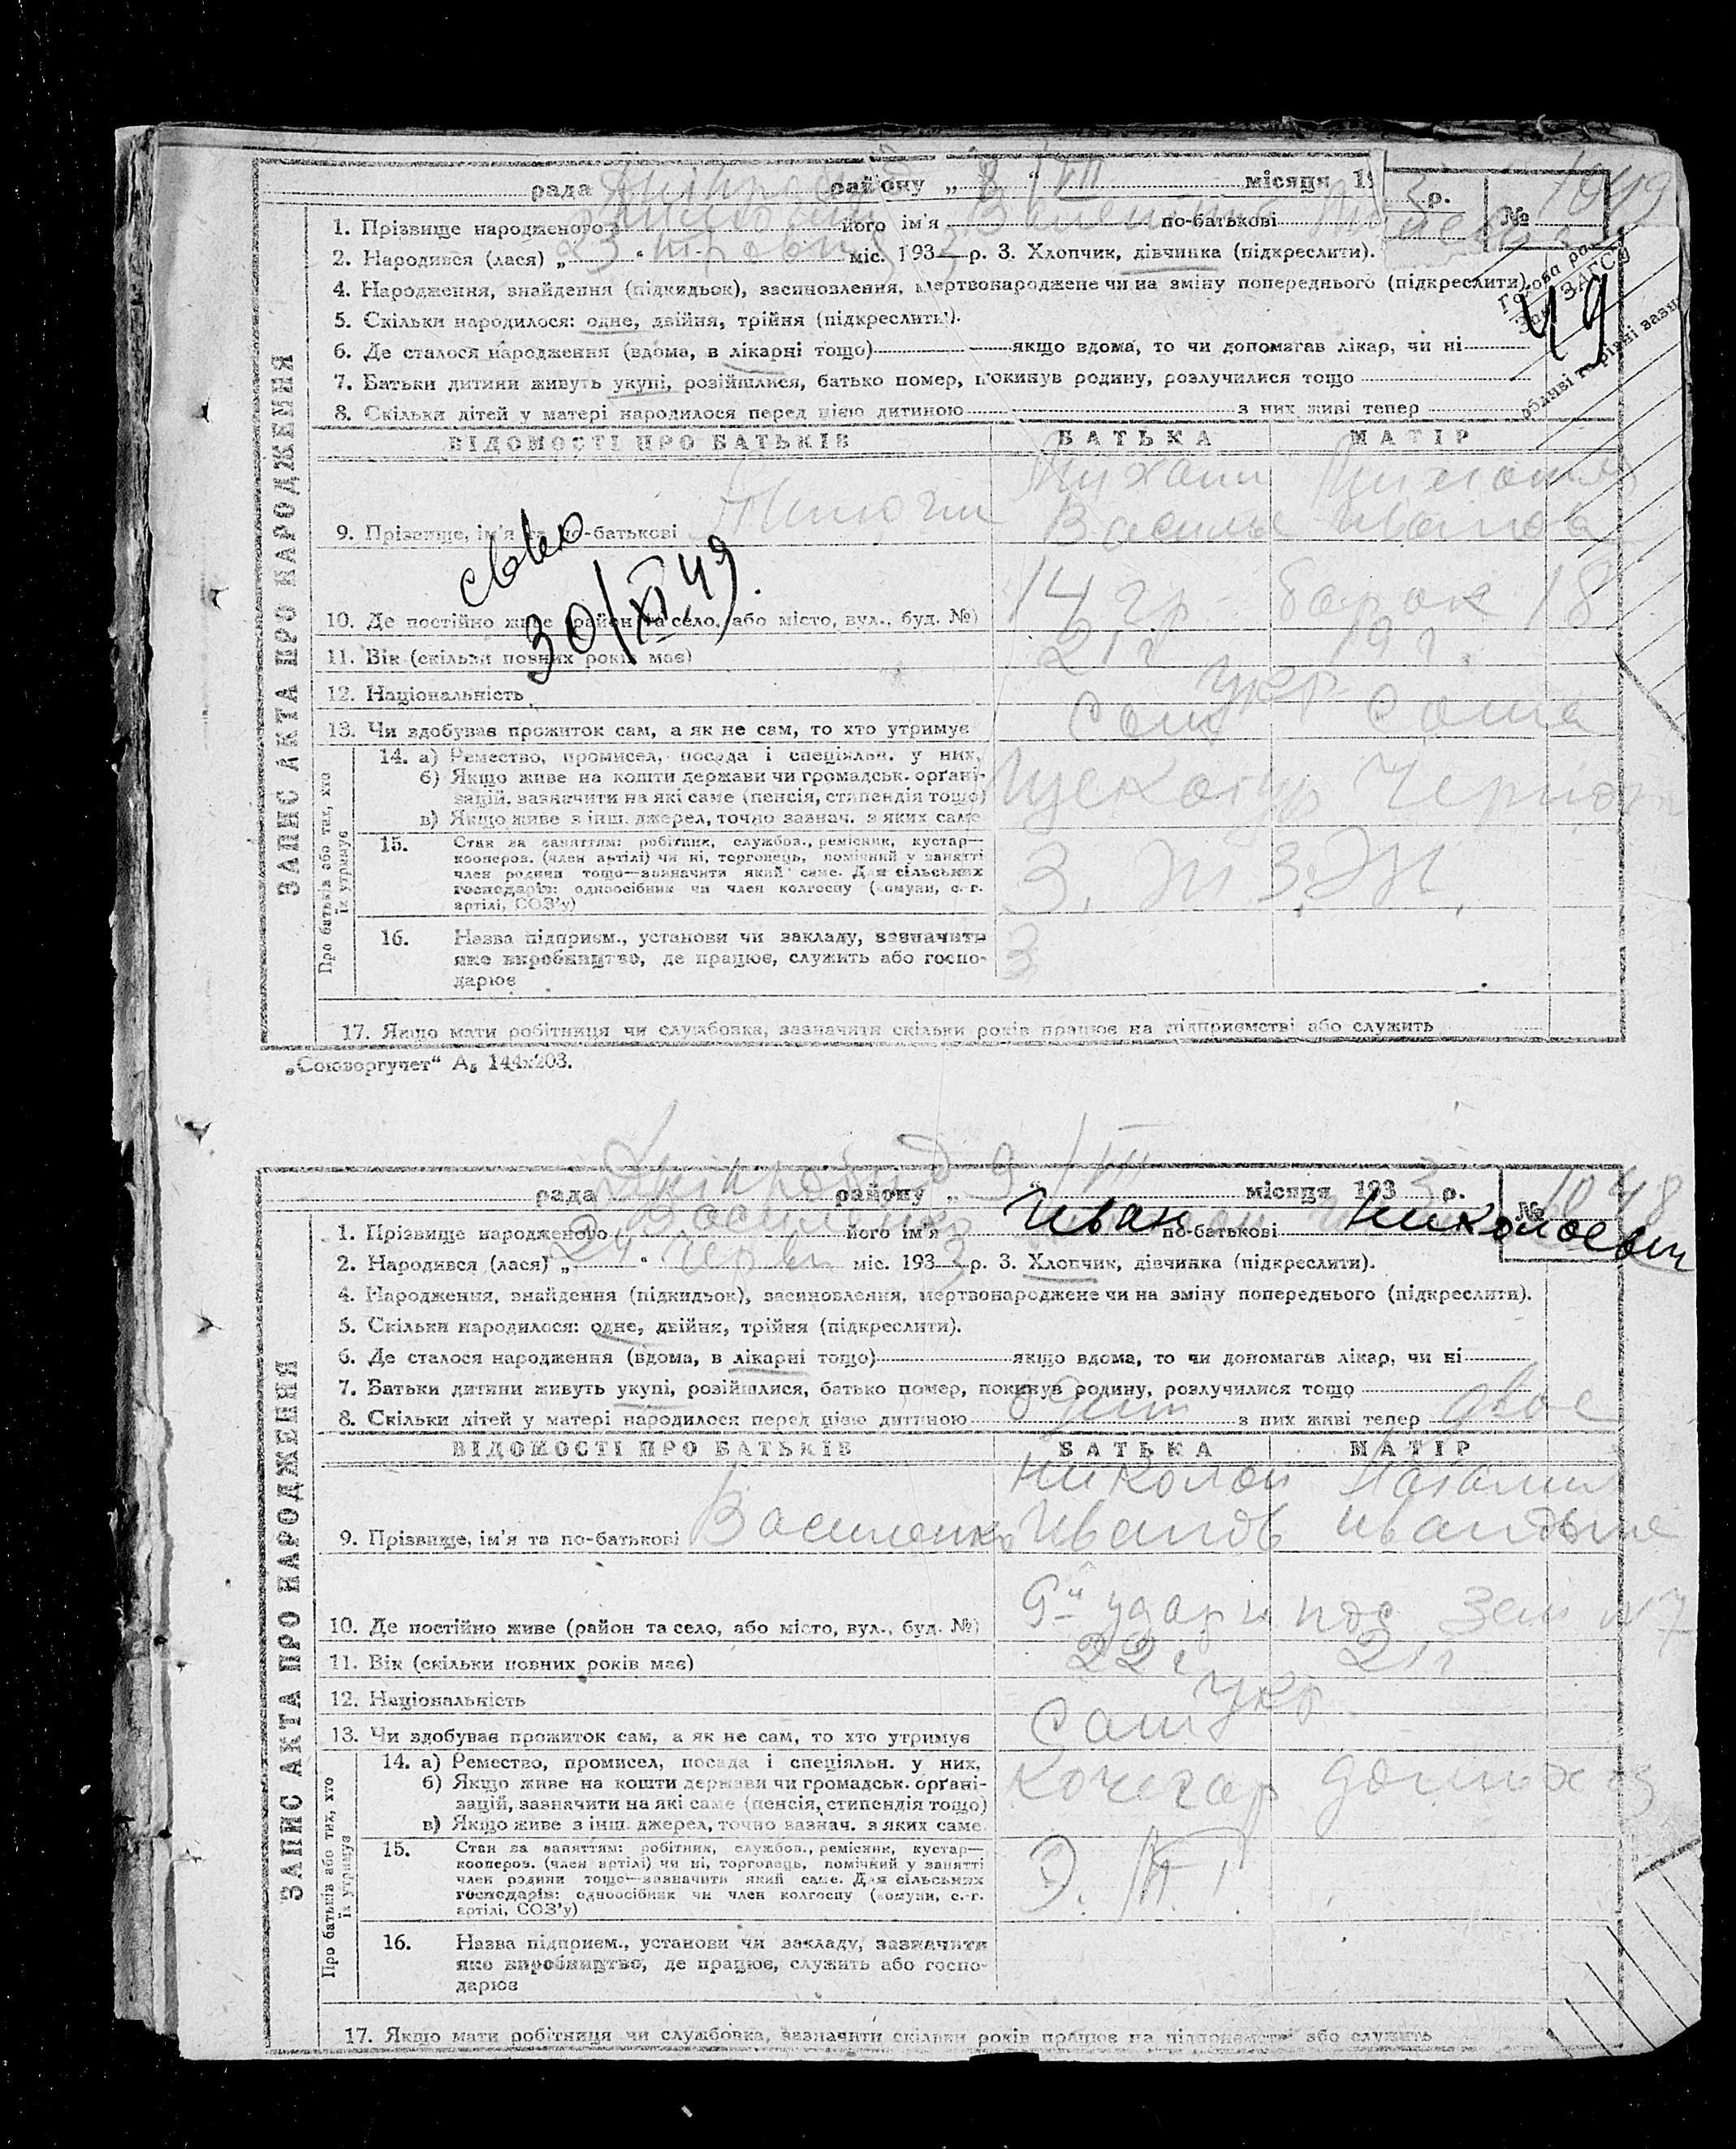 рада району „ 8 “ VII місяця 19 3 р. № 1049
1. Прізвище народженого його ім'я по-батькові
2. Народився (лася) „ 23 “ міс. 193 3 р. 3. Хлопчик, дівчинка (підкреслити).
4. Народження, знайдення (підкидьок), засиновлення, мертвонароджене чи на зміну попереднього (підкреслити).
49
5. Скільки народилося: одне, двійня, трійня (підкреслить).
6. Де сталося народження (вдома, в лікарні тощо) якщо вдома, то чи допомагав лікар, чи ні
7. Батьки дитини живуть укупі, розійшлися, батько помер, покинув родину, розлучилися тощо
8. Скільки дітей у матері народилося перед цією дитиною з них живі тепер
ЗАПИС АКТА ПРО НАРОДЖЕННЯ
ВІДОМОСТІ ПРО БАТЬКІВ БАТЬКА МАТІР
9. Прізвище, ім'я та по-батькові
30/XI 49.
10. Де постійно живе (район та село, або місто, вул., буд. №) 14 барак 18
11. Вік (скільки повних років має) 21 г 19 г.
12. Національність Укр
13. Чи здобуває прожиток сам, а як не сам, то хто утримує Сам Сама
Про батьків або тих, хто їх утримує
14. а) Ремество, промисел, посада і спеціяльн. у них,
б) Якщо живе на кошти держави чи громадськ. органі-
зацій, зазначити на які саме (пенсія, стипендія тощо)
в) Якщо живе з інш. джерел, точно зазнач. з яких саме
15. Стан за заняттям: робітник, службов., ремісник, кустар—
кооперов. (член артілі) чи ні, торговець, помічний у занятті
член родини тощо—зазначити який саме. Для сільських
господарів: одноосібник чи член колгоспу (комуни, с.-г.
артілі, СОЗ'у)
16. Назва підприєм., установи чи закладу, зазначити
яке виробництво, де працює, служить або госпо-
дарює
17. Якщо мати робітниця чи службовка, зазначити скільки років працює на підприємстві або служить
„Союзоргучет“ А5 144х203.
рада району „ 9 “ VII місяця 193 3 р. № 1048
1. Прізвище народженого Василенко його ім'я Иван по-батькові Николаевич
2. Народився (лася) „ 24 “ червн міс. 193 3 р. 3. Хлопчик, дівчинка (підкреслити).
4. Народження, знайдення (підкидьок), засиновлення, мертвонароджене чи на зміну попереднього (підкреслити).
5. Скільки народилося: одне, двійня, трійня (підкреслити).
6. Де сталося народження (вдома, в лікарні тощо) якщо вдома, то чи допомагав лікар, чи ні
7. Батьки дитини живуть укупі, розійшлися, батько помер, покинув родину, розлучилися тощо
8. Скільки дітей у матері народилося перед цією дитиною один з них живі тепер двое
ЗАПИС АКТА ПРО НАРОДЖЕННЯ
ВІДОМОСТІ ПРО БАТЬКІВ БАТЬКА МАТІР
Николай
9. Прізвище, ім'я та по-батькові Василенко Иванов
10. Де постійно живе (район та село, або місто, вул., буд. №) зем №7
11. Вік (скільки повних років має) 22 г 21 г
12. Національність Укр
13. Чи здобуває прожиток сам, а як не сам, то хто утримує Сам
Про батьків або тих, хто їх утримує
14. а) Ремество, промисел, посада і спеціяльн. у них, Кочегар домхоз
б) Якщо живе на кошти держави чи громадськ. органі-
зацій, зазначити на які саме (пенсія, стипендія тощо)
в) Якщо живе з інш. джерел, точно зазнач. з яких саме
15. Стан за заняттям: робітник, службов., ремісник, кустар—
кооперов. (член артілі) чи ні, торговець, помічний у занятті
член родини тощо—зазначити який саме. Для сільських
господарів: одноосібник чи член колгоспу (комуни, с.-г.
артілі, СОЗ'у)
16. Назва підприєм., установи чи закладу, зазначити
яке виробництво, де працює, служить або госпо-
дарює
17. Якщо мати робітниця чи службовка, зазначити скільки років працює на підприємстві або служить